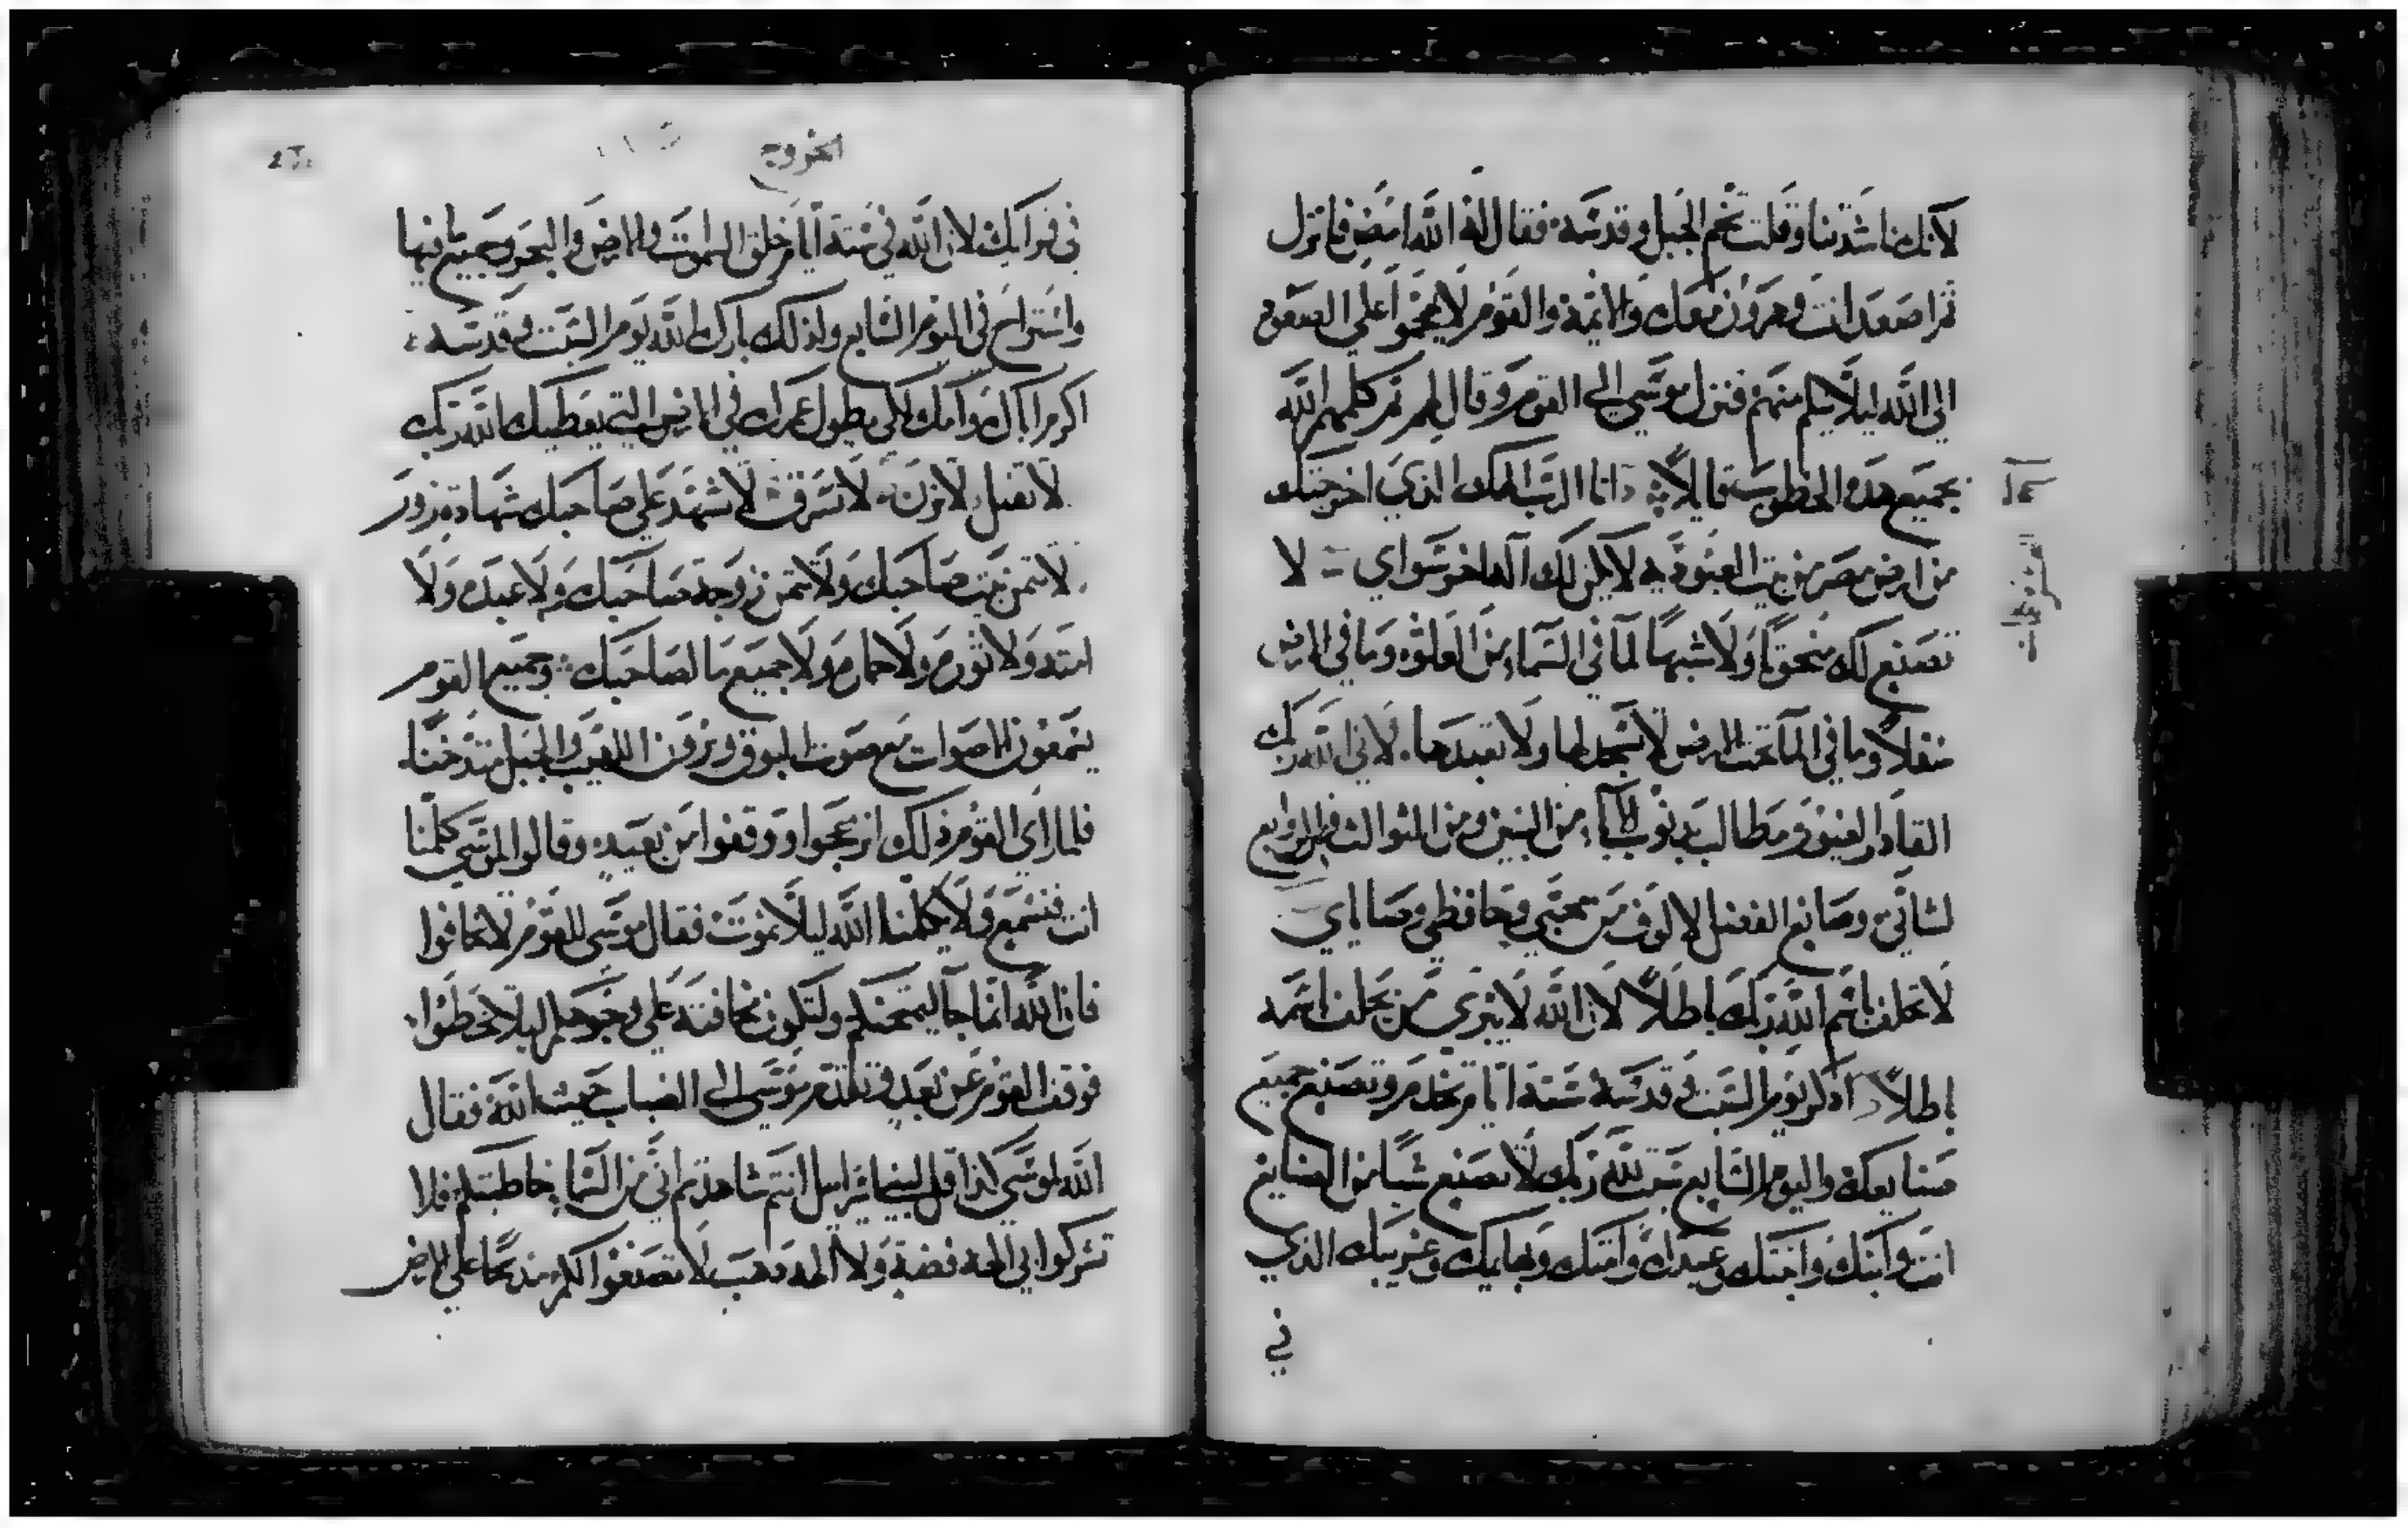 لانك ناشدتنا وقلت تخم الجبل وقدسه فقال له الله امض فانزل
ثم اصعد انت وهرون معك والائمة والقوم لا يهجموا على الصعود
الى الله ليلا يثلم منهم فنزل موسى الى القوم وقال لهم ثم كلمهم الله
بجميع هذه الخطوب قايلا انا الرب الهك الذي اخرجتك
من ارض مصر من بيت العبودية لا يكن لك آلها اخر سواي لا
تصنع لك منحوتا ولا شبها لما في السماء من العلوه وما في الارض
سفلا وما في الما تحت الارض لا تسجد لها ولا تعبدها لاني الله ربك
القادر الغيور ومطالب بذنوب الآباء من البنين ومن الثوالث والروابع
لشانئ وصانع الفضل لالوف من محبي وحافظي وصاياي
لا تحلف باسم الله ربك باطلا لان الله لا يبري من يحلف باسمه
باطلا اذكر يوم السبت وقدسه ستة ايام تخدم وتصنع جميع
صنايعك واليوم السابع سبت لله ربك لا تصنع شيا من الصنايع
انت وابنك وابنتك وعبدك وامتك وبهايمك وغريبك الذي
في
الخروج
في قراك لان الله في ستة ايام خلق السموات والارض والبحر وجميع ما فيها
واستراح في اليوم السابع ولذلك بارك الله يوم السبت وقدسه
اكرم اباك وامك لكي يطول عمرك في الارض التي يعطيك الله ربك
لا تقتل لا تزن لا تسرق لا تشهد على صاحبك شهادة زور
لا تتمن بيت صاحبك ولا تتمن زوجة صاحبك ولا عبده ولا
امته ولا ثوره ولا حماره ولا جميع ما لصاحبك وجميع القوم
يسمعون الاصوات مع صوت البوق ويرون اللهيب والجبل متدخنا
فلما راى القوم ذلك انزعجوا ووقفوا من بعيد وقالوا لموسى كلمنا
انت فنسمع ولا يكلمنا الله ليلا نموت فقال موسى للقوم لا تخافوا
فان الله انما جا ليمتحنكم ولتكون مخافته على وجوهكم ليلا تخطوا
فوقف القوم عن بعد وتقدم موسى الى الضباب حيث الله فقال
الله لموسى كذا قل لبني اسراييل انتم شاهدتم اني من السما خاطبتكم فلا
تشركوا بي الهة فضة ولا الهة ذهب لا تصنعوا لكم مذبحا على الارض